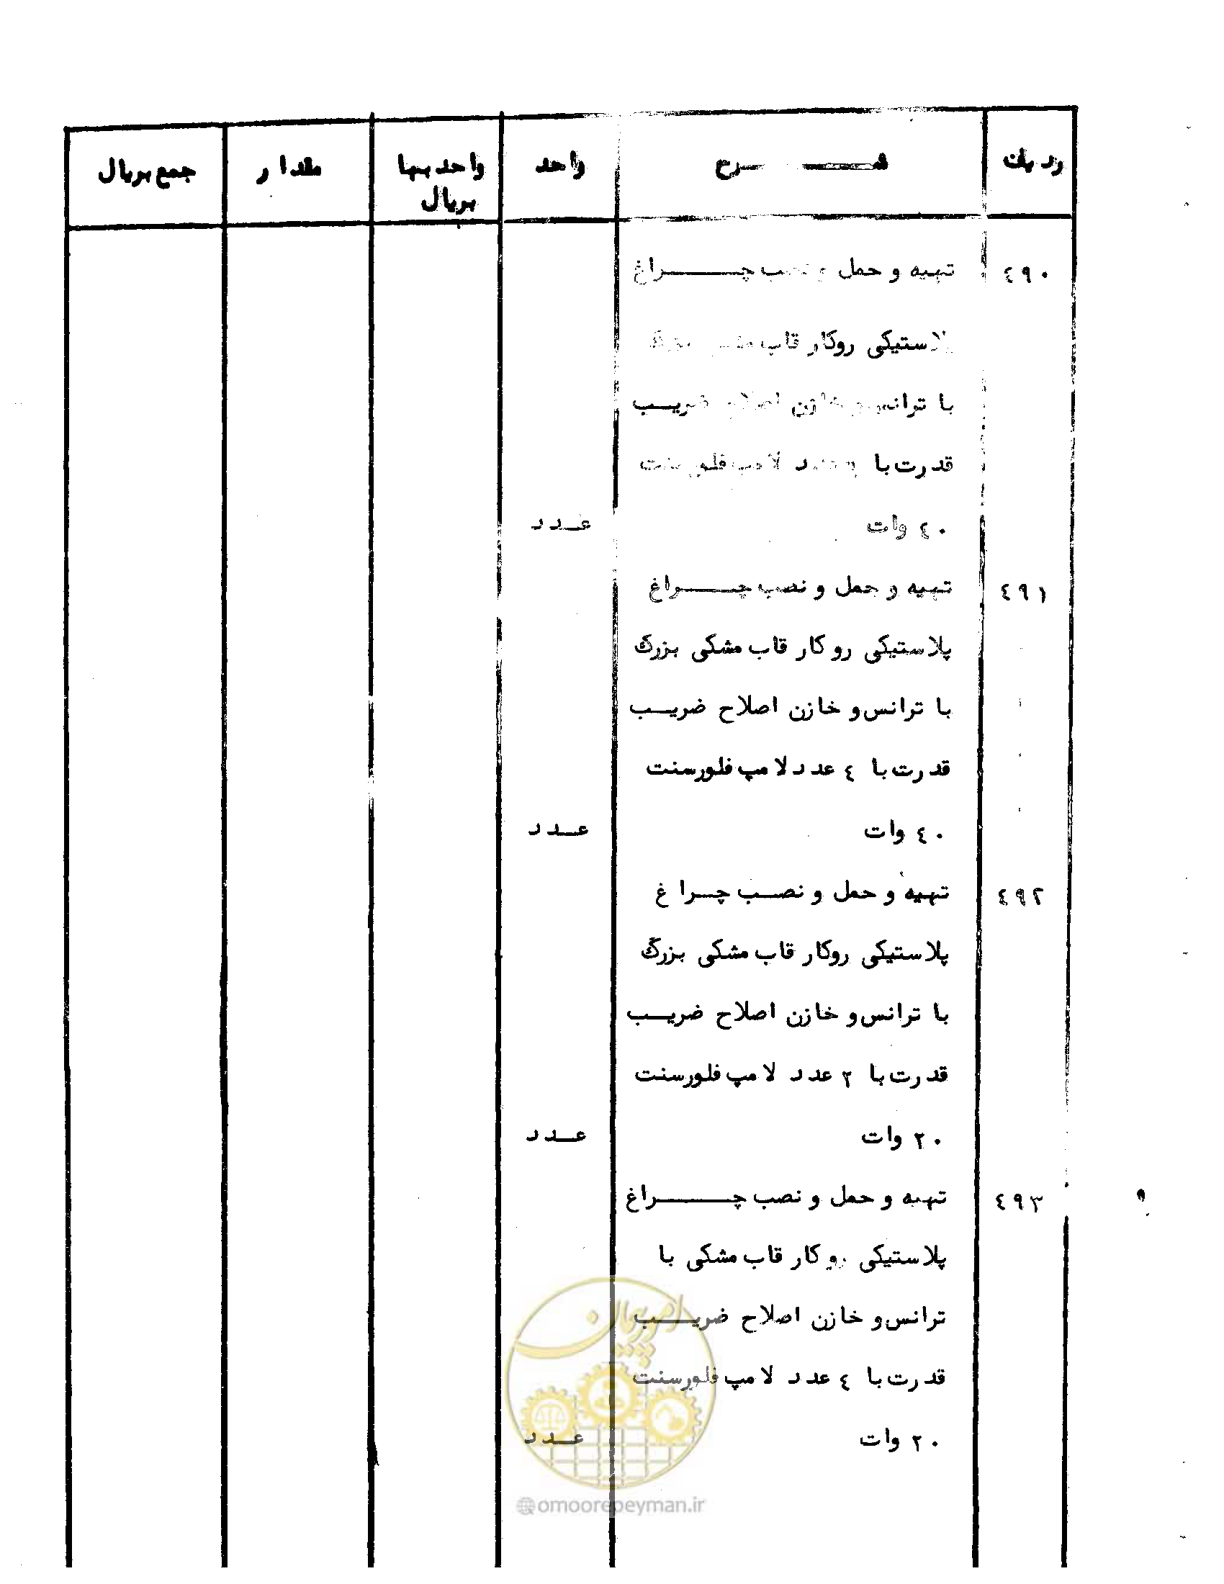 ردیف شرح واحد واحد بها مقدار جمع بریال
بریال
٤٩٠ تهیه و حمل و نصب چراغ
پلاستیکی روکار قاب مشکی بزرگ
با ترانس و خازن اصلاح ضریب
قدرت با عدد لامپ فلورسنت
٤٠ وات عدد
٤٩١ تهیه و حمل و نصب چراغ
پلاستیکی روکار قاب مشکی بزرگ
با ترانس و خازن اصلاح ضریب
قدرت با ٤ عدد لامپ فلورسنت
٤٠ وات عدد
٤٩٢ تهیه و حمل و نصب چراغ
پلاستیکی روکار قاب مشکی بزرگ
با ترانس و خازن اصلاح ضریب
قدرت با ٢ عدد لامپ فلورسنت
٢٠ وات عدد
٤٩٣ تهیه و حمل و نصب چراغ
پلاستیکی روکار قاب مشکی با
ترانس و خازن اصلاح ضریب
قدرت با ٤ عدد لامپ فلورسنت
٢٠ وات عدد
امور پیمان
omoorepeyman.ir